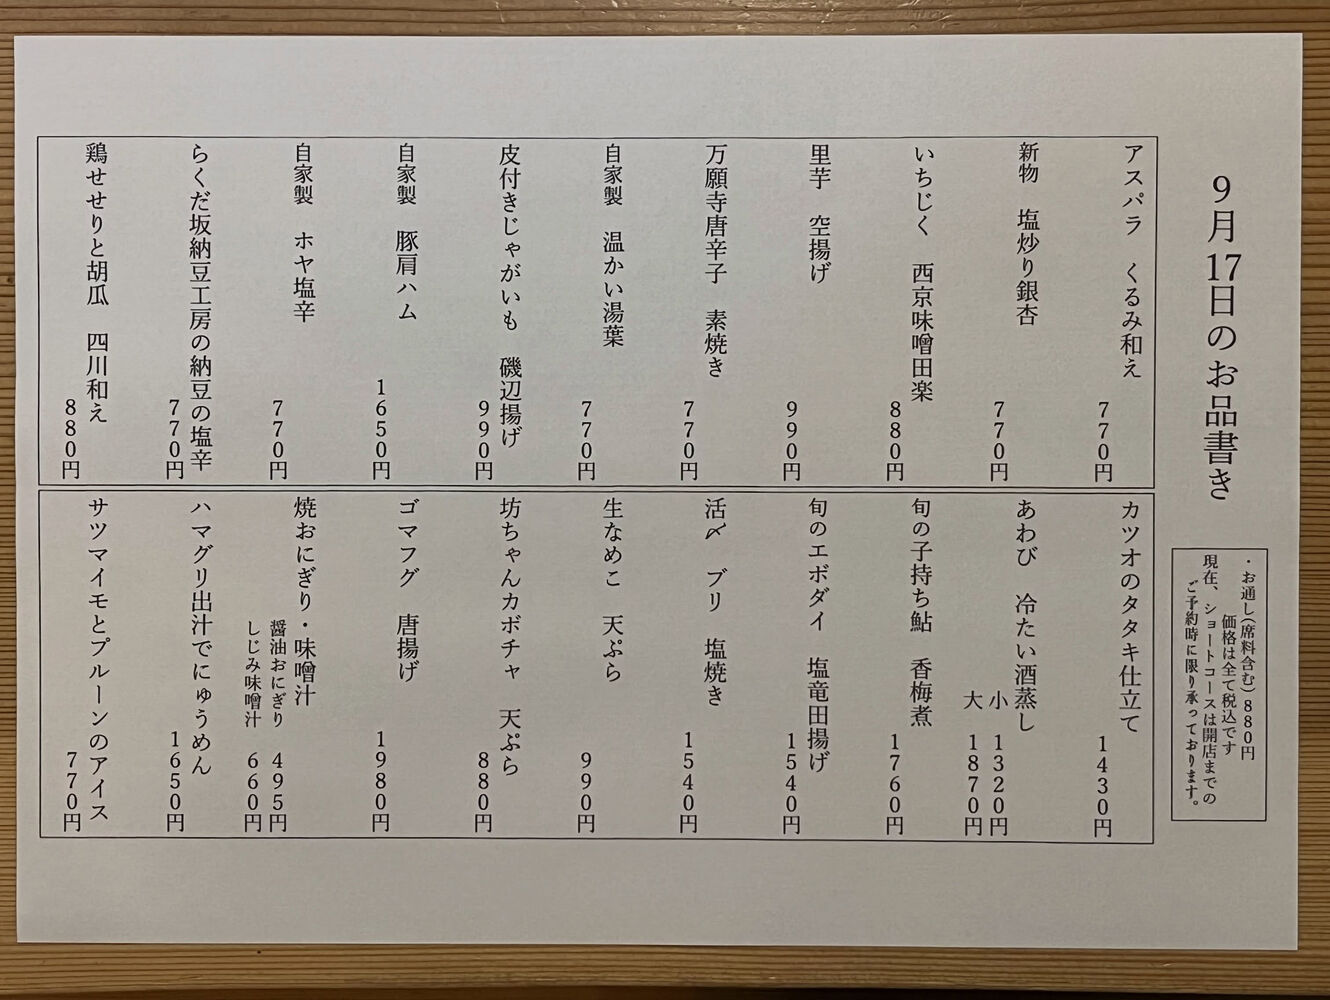 9月17日のお品書き
・お通し(席料含む)880円
価格は全て税込です
現在、ショートコースは開店までの
ご予約時に限り承っております。
アスパラ くるみ和え
770円
新物 塩炒り銀杏
770円
いちじく 西京味噌田楽
880円
里芋 空揚げ
990円
万願寺唐辛子 素焼き
770円
自家製 温かい湯葉
770円
皮付きじゃがいも 磯辺揚げ
990円
自家製 豚肩ハム
1650円
自家製 ホヤ塩辛
770円
らくだ坂納豆工房の納豆の塩辛
770円
鶏せせりと胡瓜 四川和え
880円
カツオのタタキ仕立て
1430円
あわび 冷たい酒蒸し
小 1320円
大 1870円
旬の子持ち鮎 香梅煮
1760円
旬のエボダイ 塩竜田揚げ
1540円
活〆 ブリ 塩焼き
1540円
生なめこ 天ぷら
990円
坊ちゃんカボチャ 天ぷら
880円
ゴマフグ 唐揚げ
1980円
焼おにぎり・味噌汁
醤油おにぎり 495円
しじみ味噌汁 660円
ハマグリ出汁でにゅうめん
1650円
サツマイモとプルーンのアイス
770円